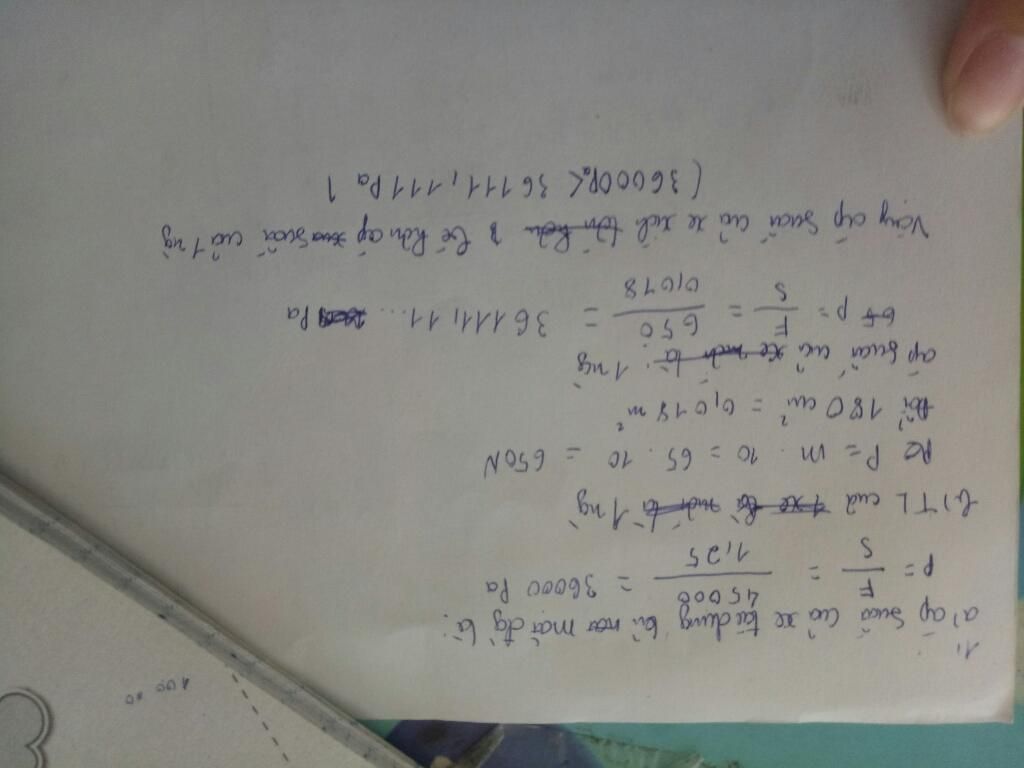 1,
a) áp suất của xe tác dụng lên mặt đg là:
p = F/S = 45000/1,25 = 36000 Pa
b) TL của 1 ng
P = m . 10 = 65 . 10 = 650N
Đổi 180 cm² = 0,018 m²
áp suất của 1 ng
p = F/S = 650/0,018 = 36111,11... Pa
Vậy áp suất của xe xích bé hơn áp suất của 1 ng
(36000Pa < 36111,111 Pa)